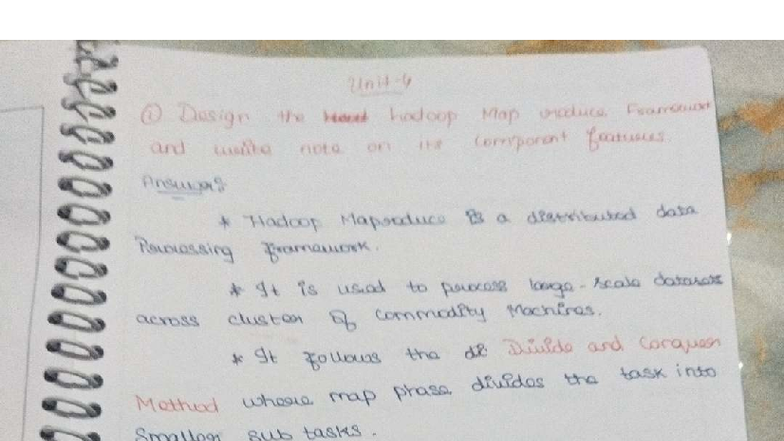 Unit-4
① Design the hadoop Map reduce Framework
and write note on its Component features.
Answer:
* Hadoop Mapreduce is a distributed data
Processing framework.
* It is used to process large-scale datasets
across cluster of Commodity Machines.
* It follows the di Divide and Conquer
Method where map phase divides the task into
Smaller sub tasks.